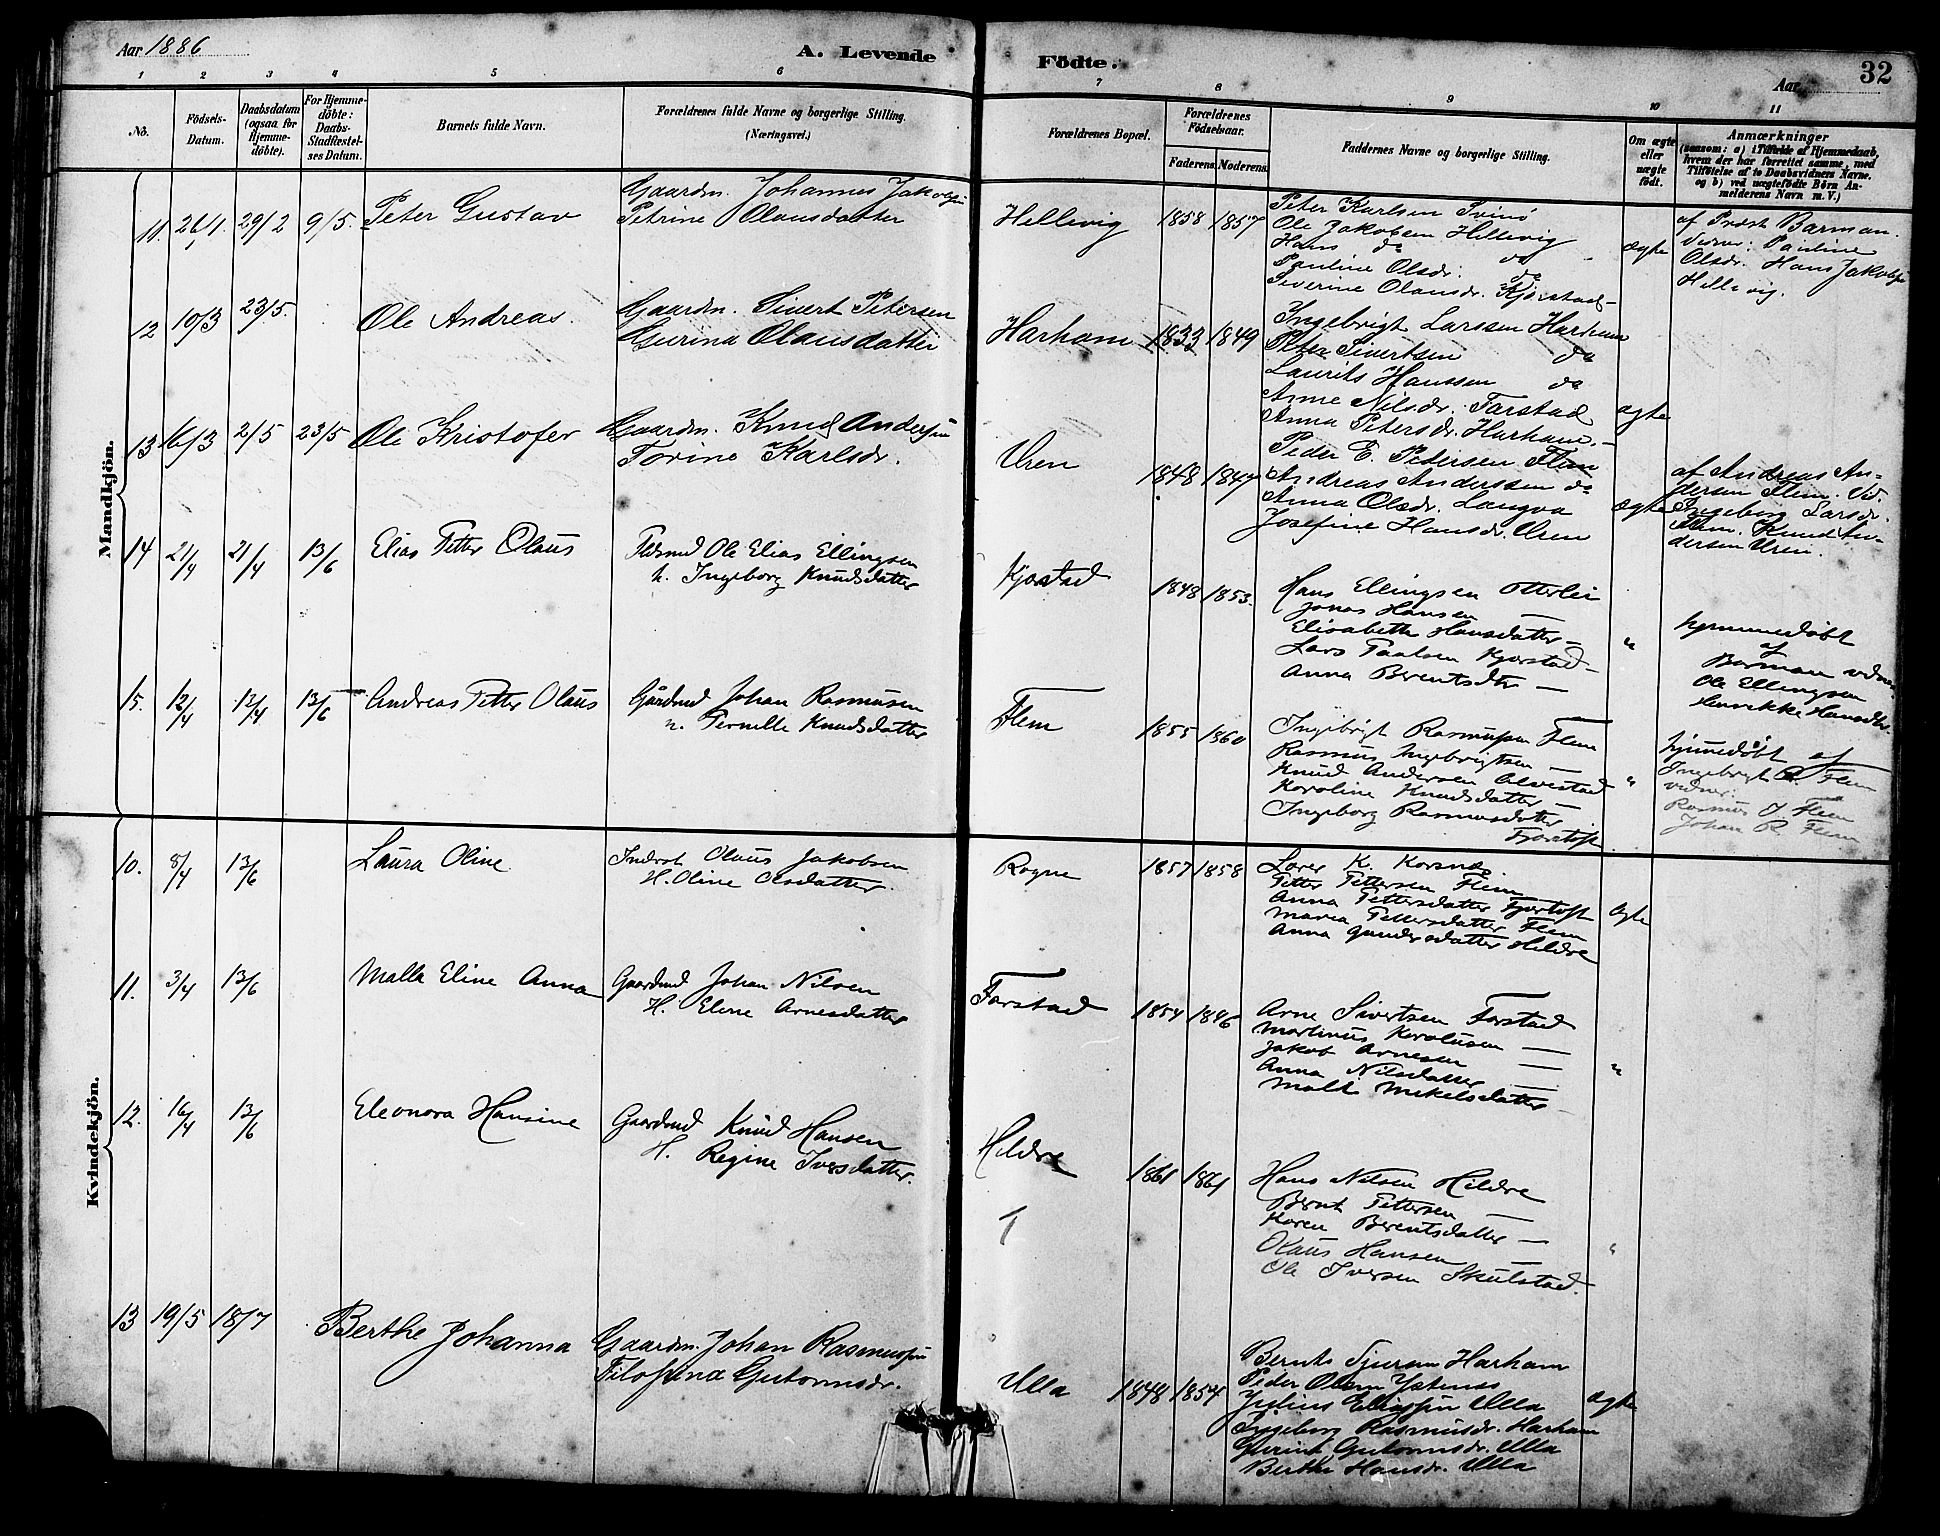 Aar 1886
A. Levende Födte.
Aar
32
1 2 3 4 5 6 7 8 9 10 11
No.
Födsels-Datum.
Daabsdatum (ogsaa for Hjemme-döbte).
For Hjemme-döbte: Daabs-Stadfæstel-ses Datum.
Barnets fulde Navn.
Forældrenes fulde Navne og borgerlige Stilling.
(Næringsvei.)
Forældrenes Bopæl.
Forældrenes Födselsaar.
Faderens. Moderens.
Faddernes Navne og borgerlige Stilling.
Om ægte eller uægte födt.
Anmærkninger
(saasom: a) i Tilfælde af Hjemmedaab,
hvem der har forrettet samme, med
Tilföielse af to Daabsvidners Navne.
og b) ved uægtefödte Börn An-
melderens Navn m. V.)
Mandkjön.
11. 26/1. 29/2 9/5. Peter Gustav
Gaardm. Johannes Jakobsen
Petrine Olausdatter
Hellevig 1858 1857
Peter Karlsen Svinö
Ole Jakobsen Hellevig
Hans do do
Pauline Olsdr. do
Siverine Olausdr. Kjörstad
ægte
af Præst Barman.
Vidner: Pauline
Olsdr. Hans Jakobsen
Hellevig.
12 10/3 23/5. Ole Andreas.
Gaardm. Sivert Petersen
Gurina Olausdatter
Harham 1833 1849
Ingebrigt Larssen Harham
Peter Sivertsen do
Laurits Hanssen do
Anne Nilsdr. Farstad
Anna Petersdr. Harham.
ægte
13 16/3 2/5 23/5 Ole Kristofer
Gaardm. Knud Andersen
Torine Karlsdr.
Uren 1848 1847
Peder E. Pedersen Flem
Andreas Anderssen do
Anna Olsdr. Langva
Josefine Hansdr. Uren
ægte
af Andreas An-
dersen Flem. Vid.
Ingeborg Larsdr.
Flem. Knud An-
dersen Uren.
14 2/4 21/4 13/6 Elias Petter Olaus
Ole Elias Ellingsen
h. Ingeborg Knudsdatter
Kjorstad 1848 1853.
Hans Ellingsen Otterlei
Jonas Hansen —
Elisabeth Hansdatter —
Lars Paulsen Kjorstad —
Anna Berentsdtr —
"
hjemmedöbt
af
Barman vidner
Ole Ellingsen
Henrikke Hansdtr
15. 12/4 12/4 13/6 Andreas Petter Olaus
Gårdmd Johan Rasmusen
h. Pernille Knudsdatter
Flem 1855 1860
Ingebrigt Rasmusen Flem
Rasmus Ingebrigtsen —
Knud Andersen Alvestad
Karoline Knudsdatter —
Ingeborg Rasmusdatter
Fjortoft
"
hjemedöbt af
Ingebrigt R. Flem
vidner:
Rasmus J Flem
Johan R. Flem
Kvindekjön.
10. 8/4 13/6 Laura Oline
Inderst Olaus Jakobsen
H. Oline Olsdatter.
Rogne 1857 1858
K. Korsnæs
Petter Pettersen Flem
Anna Pettersdatter Fjortoft
Maria Pettersdatter Flem
Anna Gundersdatter Hildre
ægte
11. 3/4 13/6 Malla Eline Anna
Gaardmd Johan Nilsen
H. Elene Arnesdatter
Farstad 1854 1846
Arne Sivertsen Farstad
Martinus Karolusen —
Jakob Arnesen —
Anna Nilsdatter —
Malli Mikelsdatter —
"
12. 16/4 13/6 Eleonora Hansine
Gaardmd Knud Hansen
H. Regine Iversdatter.
Hildre 1861 1861
Hans Nilsen Hildre
Bernt Pettersen —
Karen Berentsdatter —
Olaus Hansen —
Ole Iversen Skulstad.
"
13 19/5 18/7 Berthe Johanna
Gaardm. Johan Rasmussen
Gutormsdr.
Ulla 1848 1854
Harham
Peder Olsen
Julius Eliassen Ulla
Ingeborg Rasmusdr. Harham
Gurine Gutormsdr. Ulla
Berthe Hansdr. Ulla
ægte